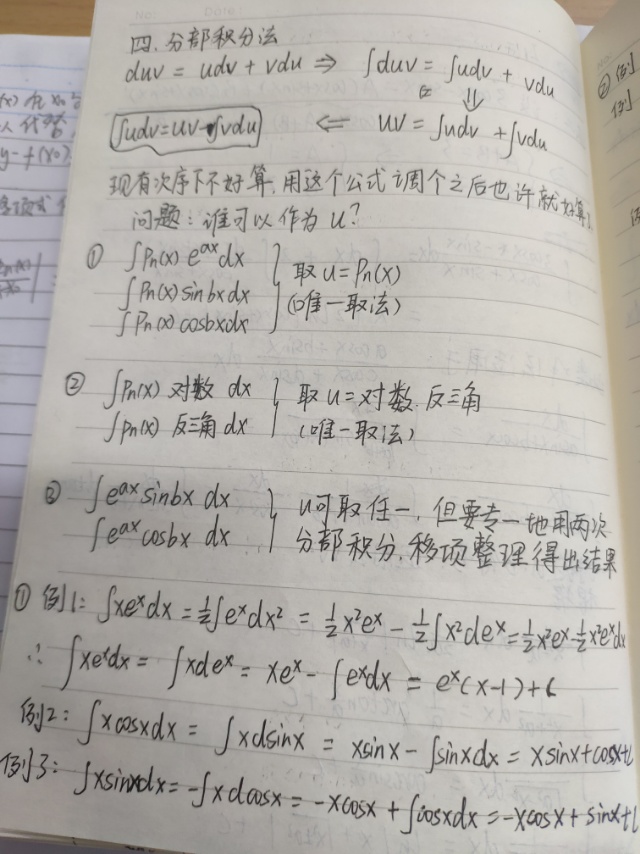 四.分部积分法
duv = udv + vdu ⇒ ∫duv = ∫udv + vdu
∫udv = uv - ∫vdu ⇐ uv = ∫udv + ∫vdu
现有次序下不好算,用这个公式调个之后也许就好算
问题:谁可以作为u?
① ∫Pn(x) e^{ax} dx
∫Pn(x) sinbx dx
∫Pn(x) cosbx dx
取 u = Pn(x)
(唯一取法)
② ∫Pn(x) 对数 dx
∫Pn(x) 反三角 dx
取 u = 对数.反三角
(唯一取法)
③ ∫e^{ax} sinbx dx
∫e^{ax} cosbx dx
u可取任一,但要专一地用两次
分部积分,移项整理得出结果
① 例1: ∫xe^x dx = ½∫e^x dx² = ½x²e^x - ½∫x²de^x = ½x²e^x - ½∫x²e^x dx
∴ ∫xe^x dx = ∫xde^x = xe^x - ∫e^x dx = e^x(x-1)+C
例2: ∫xcosxdx = ∫xdsinx = xsinx - ∫sinxdx = xsinx+cosx+C
例3: ∫xsinxdx = -∫xdcosx = -xcosx + ∫cosxdx = -xcosx + sinx+C
② 例
例